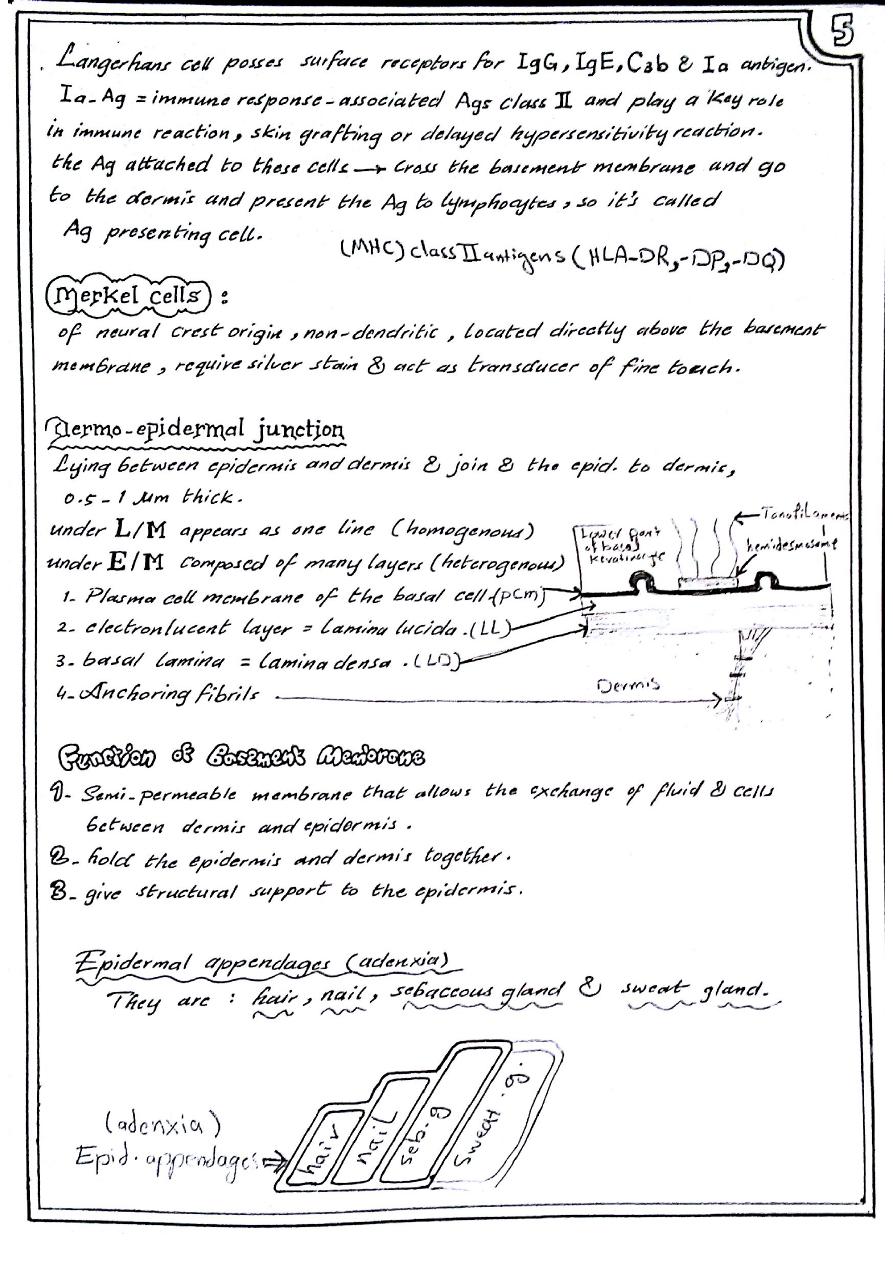 5
. Langerhans cell posses surface receptors for IgG, IgE, C3b & Ia antigen.
Ia-Ag = immune response-associated Ags class II and play a Key role
in immune reaction, skin grafting or delayed hypersensitivity reaction.
the Ag attached to these cells → Cross the basement membrane and go
to the dermis and present the Ag to lymphocytes, so it's called
Ag presenting cell.
(MHC) class II antigens (HLA-DR, -DP, -DQ)
Merkel cells :
of neural crest origin, non-dendritic, located directly above the basement
membrane, require silver stain & act as transducer of fine touch.
Dermo-epidermal junction
Lying between epidermis and dermis & join & the epid. to dermis,
0.5 - 1 µm thick.
under L/M appears as one line (homogenous)
under E/M composed of many layers (heterogenous)
1- Plasma cell membrane of the basal cell (pCm)
2- electronlucent layer = Lamina lucida. (LL)
3- basal lamina = Lamina densa. (LD)
4- Anchoring fibrils
Tonofilaments
Lower part
of basal
keratinocyte
hemidesmosome
Dermis
Function of Basement Membrane
1- Semi-permeable membrane that allows the exchange of fluid & cells
between dermis and epidermis.
2- hold the epidermis and dermis together.
3- give structural support to the epidermis.
Epidermal appendages (adenxia)
They are : hair, nail, sebaceous gland & sweat gland.
(adenxia)
Epid. appendages ⇒
hair
nail
seb. g
sweat. g.